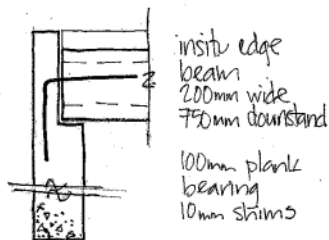 insitu edge
beam
200mm wide
750mm downstand
100mm plank
bearing
10mm shims